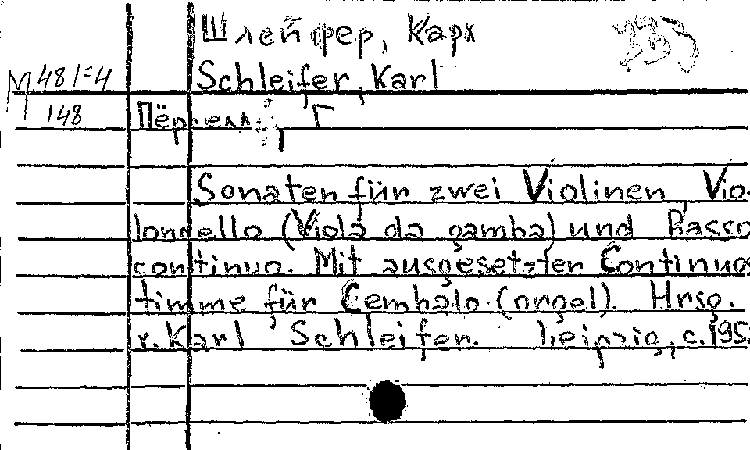 Шлейфер, Карл
Schleifer, Karl
М 481=4
148
Пёрселл, Г
Sonaten für zwei Violinen, Vio-
loncello (Viola da gamba) und Basso
continuo. Mit ausgesetzter Continuo
timme für Cembalo (orgel). Hrsg.
v. Karl Schleifer. Leipzig, c.195